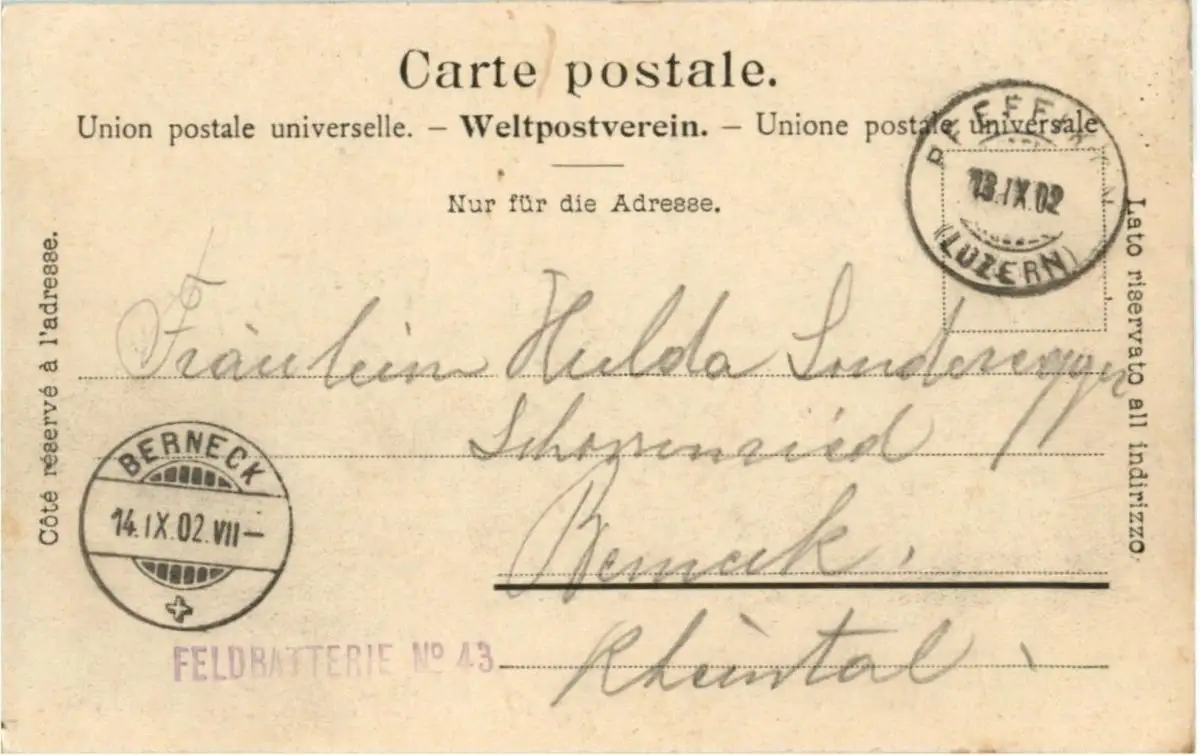 Carte postale.
Union postale universelle. – Weltpostverein. – Unione postale universale
Nur für die Adresse.
Côté réservé à l'adresse.
Lato riservato all indirizzo.
PFEFFIKON
13.IX.02
(LUZERN)
Fräulein Hulda Sonderegger
Berneck.
Rheintal
BERNECK
14.IX.02.VII–
FELDBATTERIE Nº 43